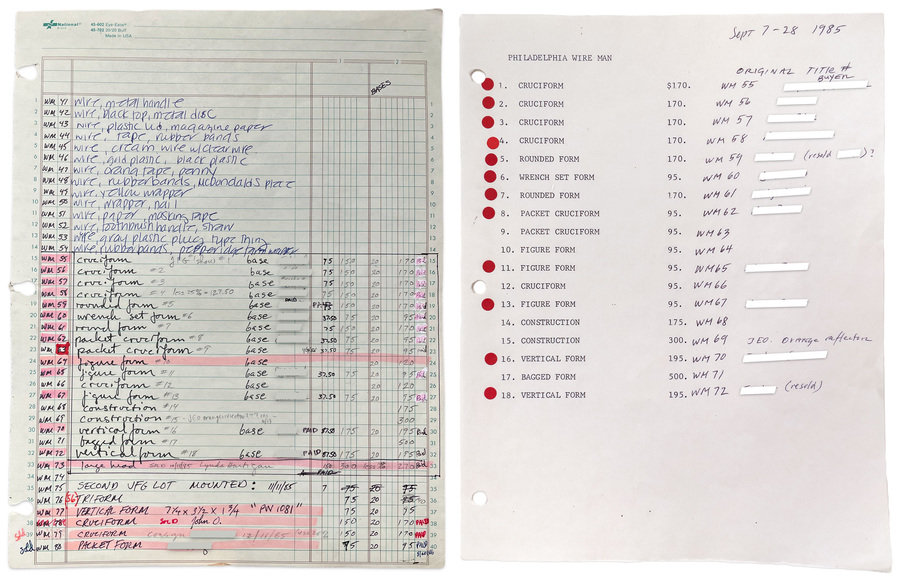 National
45-602 Eye-Ease
45-702 20/20 Buff
Made in USA
1 2
BASES
1 WM 41 wire, metal handle
2 WM 42 wire, black top, metal disc
3 WM 43 wire, plastic lid, magazine paper
4 WM 44 wire, tape, rubber bands
5 WM 45 wire, cream wire w/clear wire
6 WM 46 wire, grid plastic, black plastic
7 WM 47 wire, orang tape, penny
8 WM 48 wire, rubberbands, McDonalds piece
9 WM 49 wire, yellow wrapper
10 WM 50 wire, wrapper, nail
11 WM 51 wire, paper, masking tape
12 WM 52 wire, toothbrush handle, straw
13 WM 53 wire, gray plastic plug type thing
14 WM 54 wire, rubberbands, pepperidge farm wrapper
15 WM 55 cruciform #1 base 75 150 20 170 Pd 15
16 WM 56 cruciform #2 base 75 150 20 170 Pd 16
17 WM 57 cruciform #3 base 75 150 20 170 Pd 17
18 WM 58 cruciform #4 less 25% = 127.50 base 75 150 20 170 Pd 18
19 WM 59 rounded form #5 base PAID 75 150 20 170 Pd 19
20 WM 60 wrench set form #6 base 37.50 75 20 95 Pd 20
21 WM 61 round form #7 base 75 150 20 170 21
22 WM 62 packet cruciform #8 base 37.50 75 20 95 Pd 22
23 WM packet cruciform #9 base 37.50 75 20 95 Pd 23
24 WM 64 figure form base 20 24
25 WM 65 figure form #11 base 37.50 75 20 95 Pd 25
26 WM 66 cruciform #12 base 20 120 26
27 WM 67 figure form #13 base 37.50 75 20 95 Pd 27
28 WM 68 construction #14 175 28
29 WM 69 construction #15 300 29
30 WM 70 vertical form #16 base PAID 87.50 175 20 195 Pd 30
31 WM 71 bagged form #17 500 31
32 WM 72 vertical form #18 base PAID 87.50 175 20 195 Pd 32
33 WM 73 large head SOLD 150 300 less % 270 33
34 WM 74 PAID 34
35 WM 75 SECOND VFG LOT MOUNTED: 11/11/85 7 95 20 75 35
36 WM 76 TRIFORM 75 20 95
37 WM 77 VERTICAL FORM 7 1/4 x 3 1/2 x 1 3/4 "PW 1081" 75 20 95 37
38 WM 78 CRUCIFORM SOLD John O. 150 20 170 PAID 38
sold 39 WM 79 CRUCIFORM 12/11/85 150 20 170 PAID 39
sold WM 80 PACKET FORM 75 20 95 PAID 40
Sept 7-28 1985
PHILADELPHIA WIRE MAN
ORIGINAL TITLE #
BUYER
1. CRUCIFORM $170. WM 55
2. CRUCIFORM 170. WM 56
3. CRUCIFORM 170. WM 57
4. CRUCIFORM 170. WM 58
5. ROUNDED FORM 170. WM 59 (resold )?
6. WRENCH SET FORM 95. WM 60
7. ROUNDED FORM 170. WM 61
8. PACKET CRUCIFORM 95. WM 62
9. PACKET CRUCIFORM 95. WM 63
10. FIGURE FORM 95. WM 64
11. FIGURE FORM 95. WM 65
12. CRUCIFORM 95. WM 66
13. FIGURE FORM 95. WM 67
14. CONSTRUCTION 175. WM 68
15. CONSTRUCTION 300. WM 69 JEO. Orange reflectors
16. VERTICAL FORM 195. WM 70
17. BAGGED FORM 500. WM 71
18. VERTICAL FORM 195. WM 72 (resold)